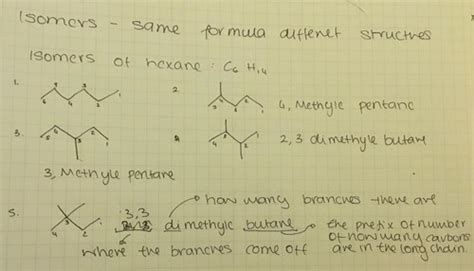 Isomers - same formula differnet structures
Isomers of hexane : C6 H14
1.
2.
4, Methyle pentane
3.
3, Methyle pentane
4.
2, 3 dimethyle butane
5.
3,3 dimethyle butane
how many branches there are
where the branches come off
the prefix of number
of how many carbons
are in the long chain